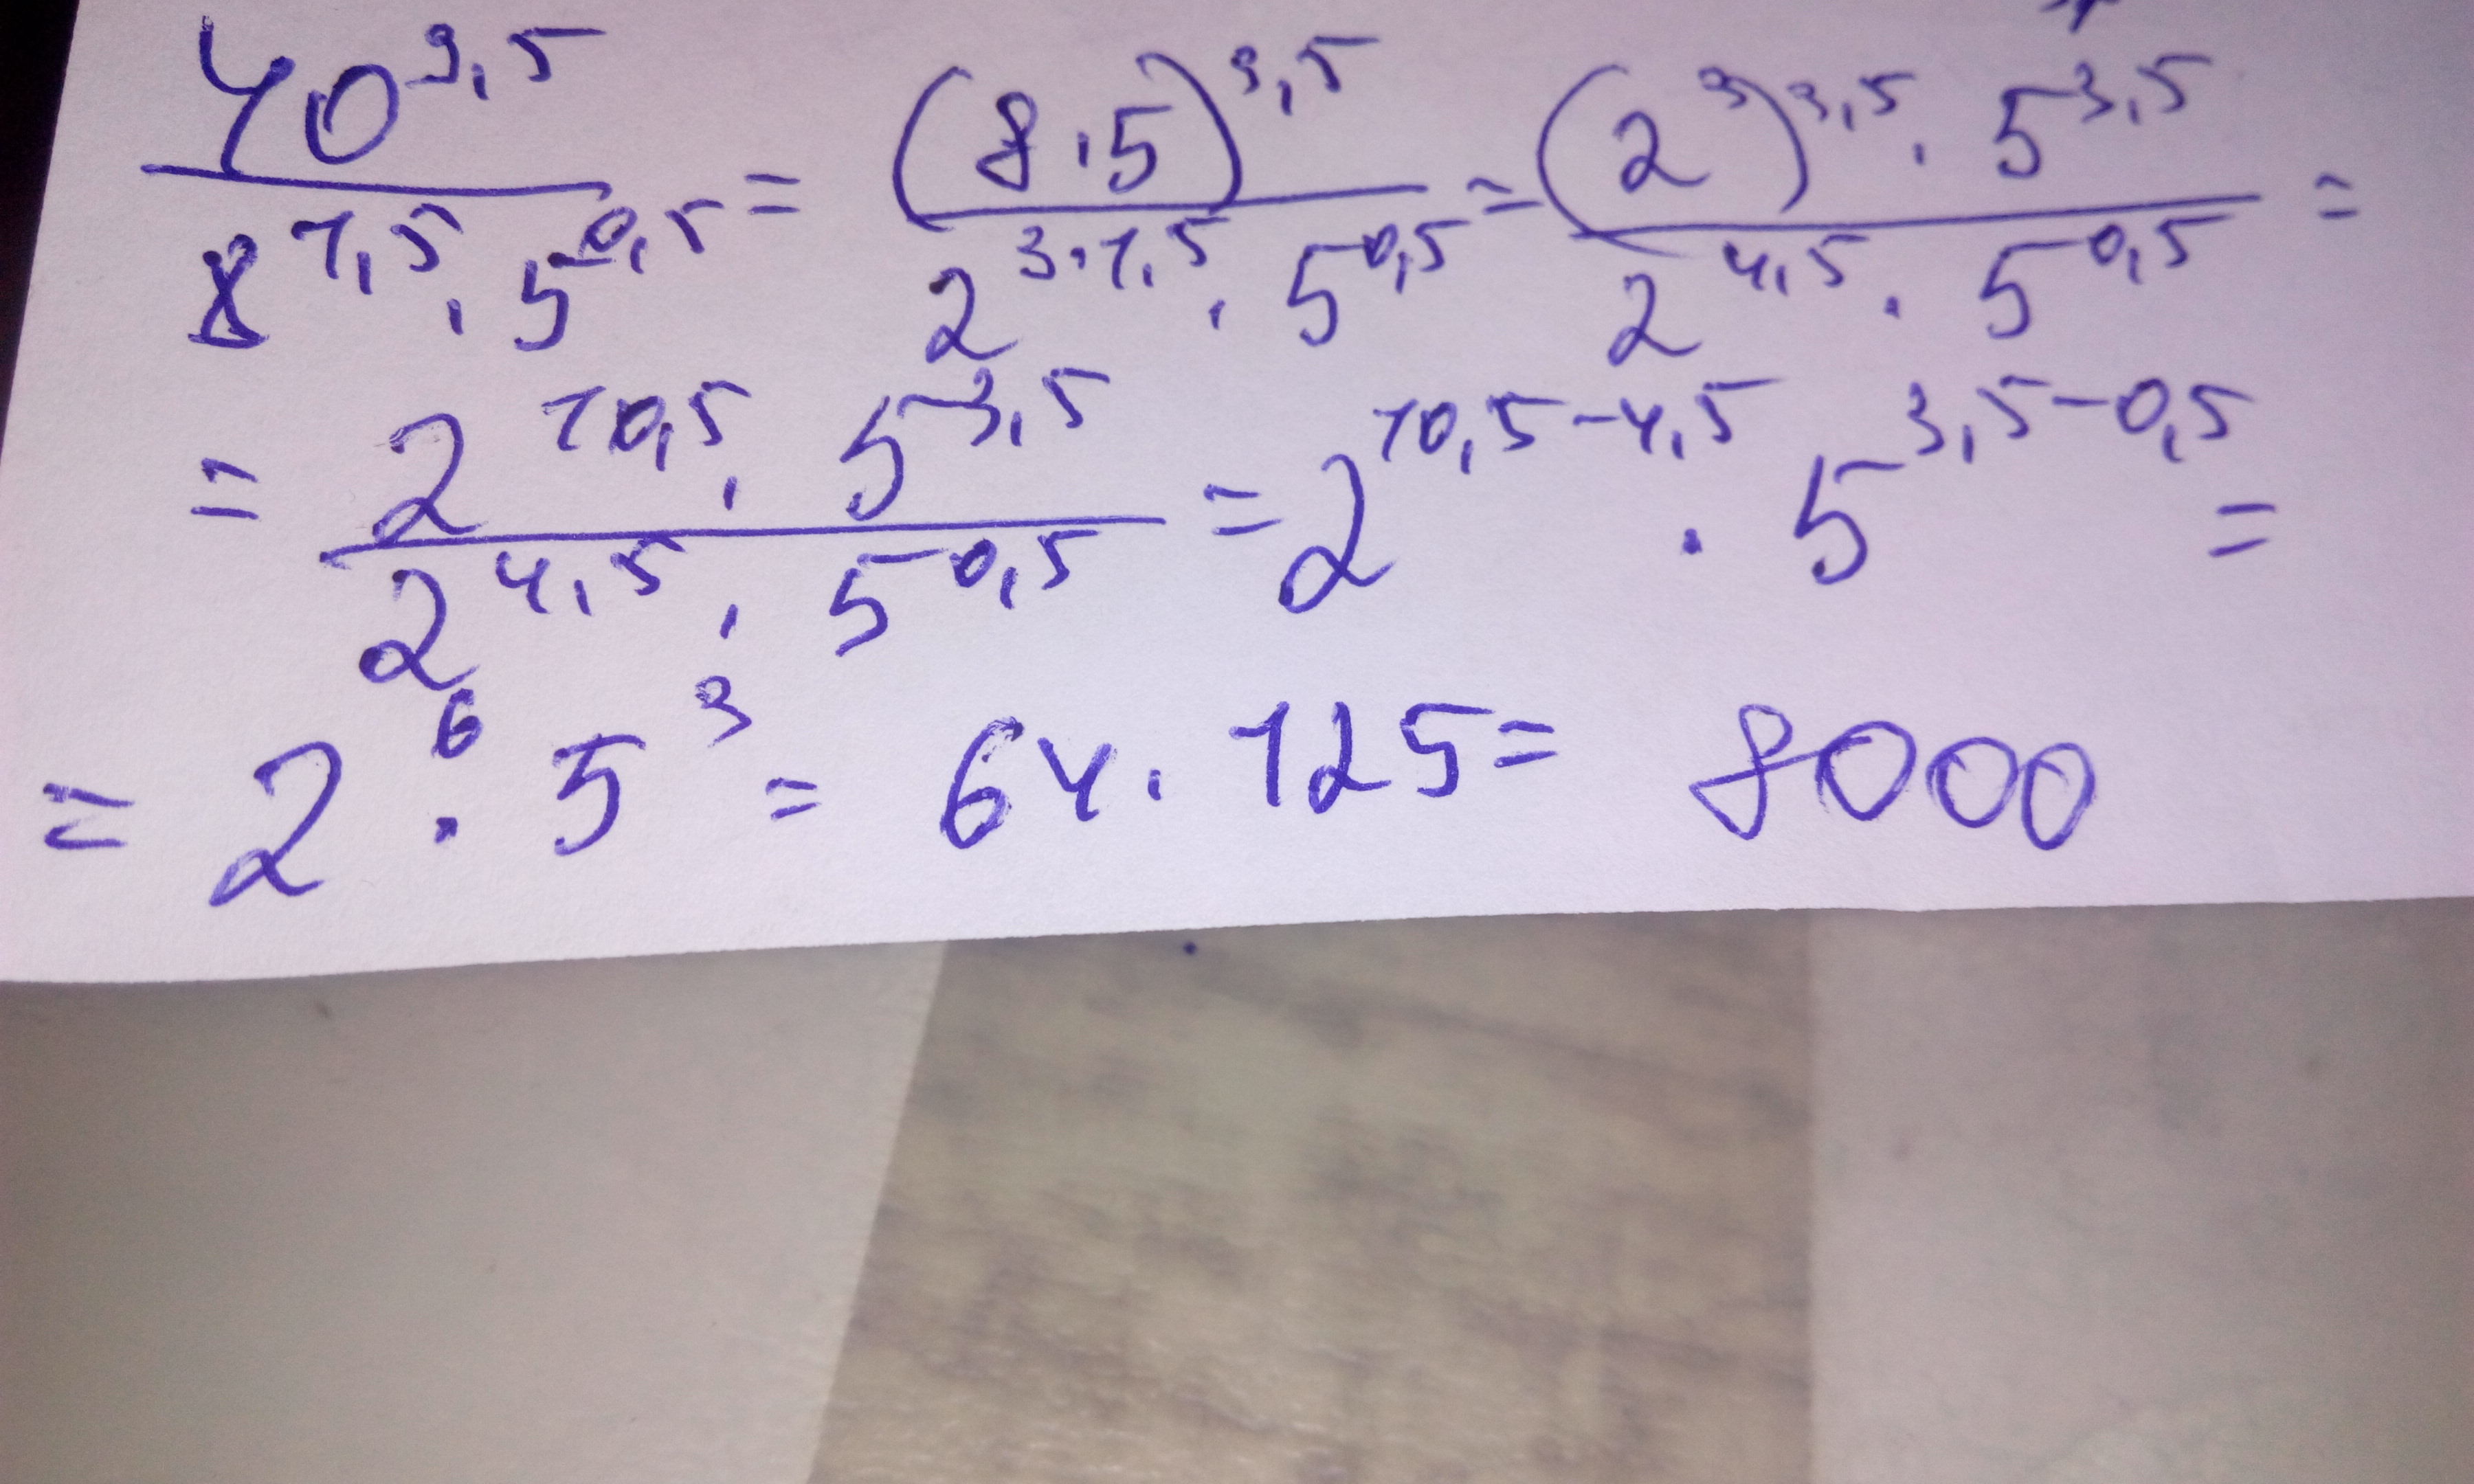 40^3,5 / 8^1,5 · 5^0,5 = (8·5)^3,5 / 2^3·1,5 · 5^0,5 = (2^3)^3,5 · 5^3,5 / 2^4,5 · 5^0,5 =
= 2^10,5 · 5^3,5 / 2^4,5 · 5^0,5 = 2^10,5-4,5 · 5^3,5-0,5 =
= 2^6 · 5^3 = 64 · 125 = 8000